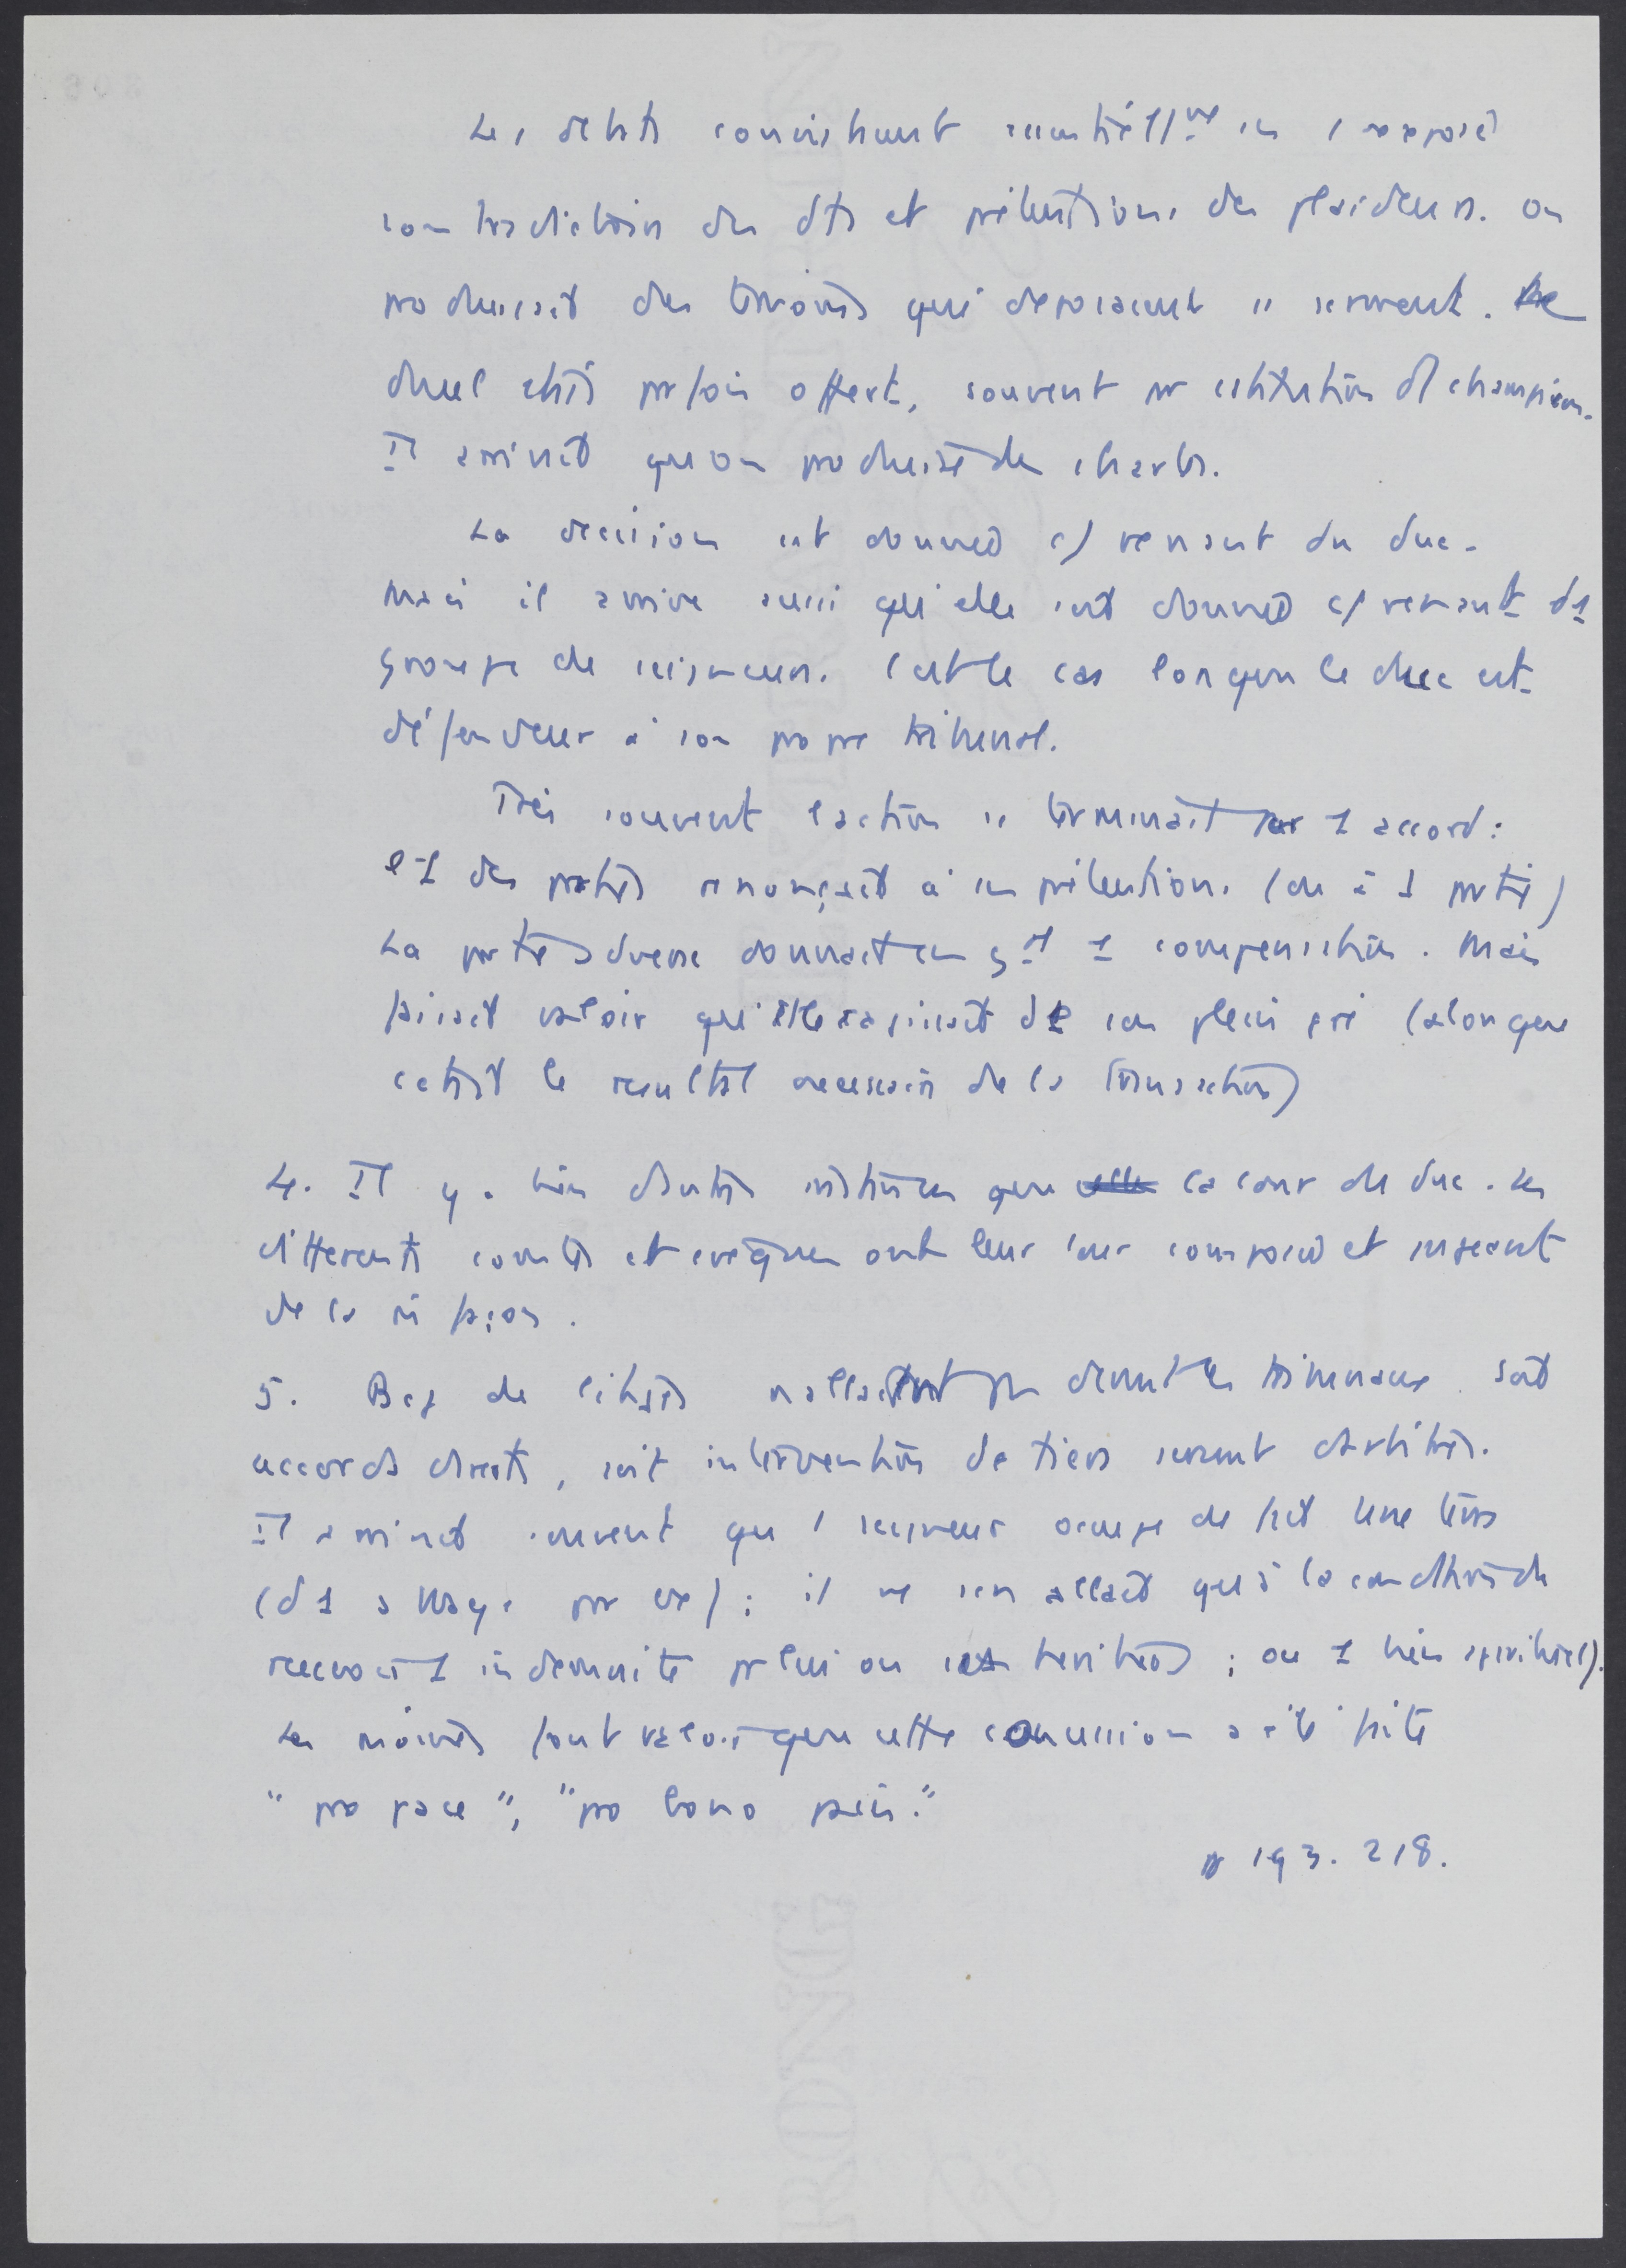 Les débats consistaient essentiellmt en 1 exposé
contradictoire des dts et prétentions des plaideurs. On
produisait des témoins qui déposaient s/ serment. Le
duel était parfois offert, souvent par d champions.
Il arrivait qu on produise des chartes.
La décision est donnée c/ venant du duc.
Mais il arrive aussi qu'elle soit donnée c/ venant d1
groupe de seigneurs. C est le cas lorsque le duc est
défendeur à son propre tribunal.
Très souvent l action se terminait par 1 accord :
l'1 des parties renonçait à ses prétentions. (ou à 1 partie)
La partie adverse donnait en 1 compensation. Mais
faisait valoir qu'elle agissait de son plein gré (alors que
cetait le resultat necessaire de la transaction)
4. Il y a bien d autres instances que la cour du duc. Les
différents comtes et évêques ont leur cour composée et
de la m façon.
5. Bcp de litiges n allaient pas devant les tribunaux. Soit
accords directs, soit intervention de tiers servant d arbitres.
Il arrivait souvent que 1 seigneur occupe de fait une terre
(d1 abbaye par ex) ; il ne s en allait qu'à la condition de
recevoir 1 indemnité pr lui ou ses heritiers ; ou 1 bien spirituel).
Les moines font valoir que cette concession a été faite
" pro pace ", " pro bono pacis."
p 193. 218.